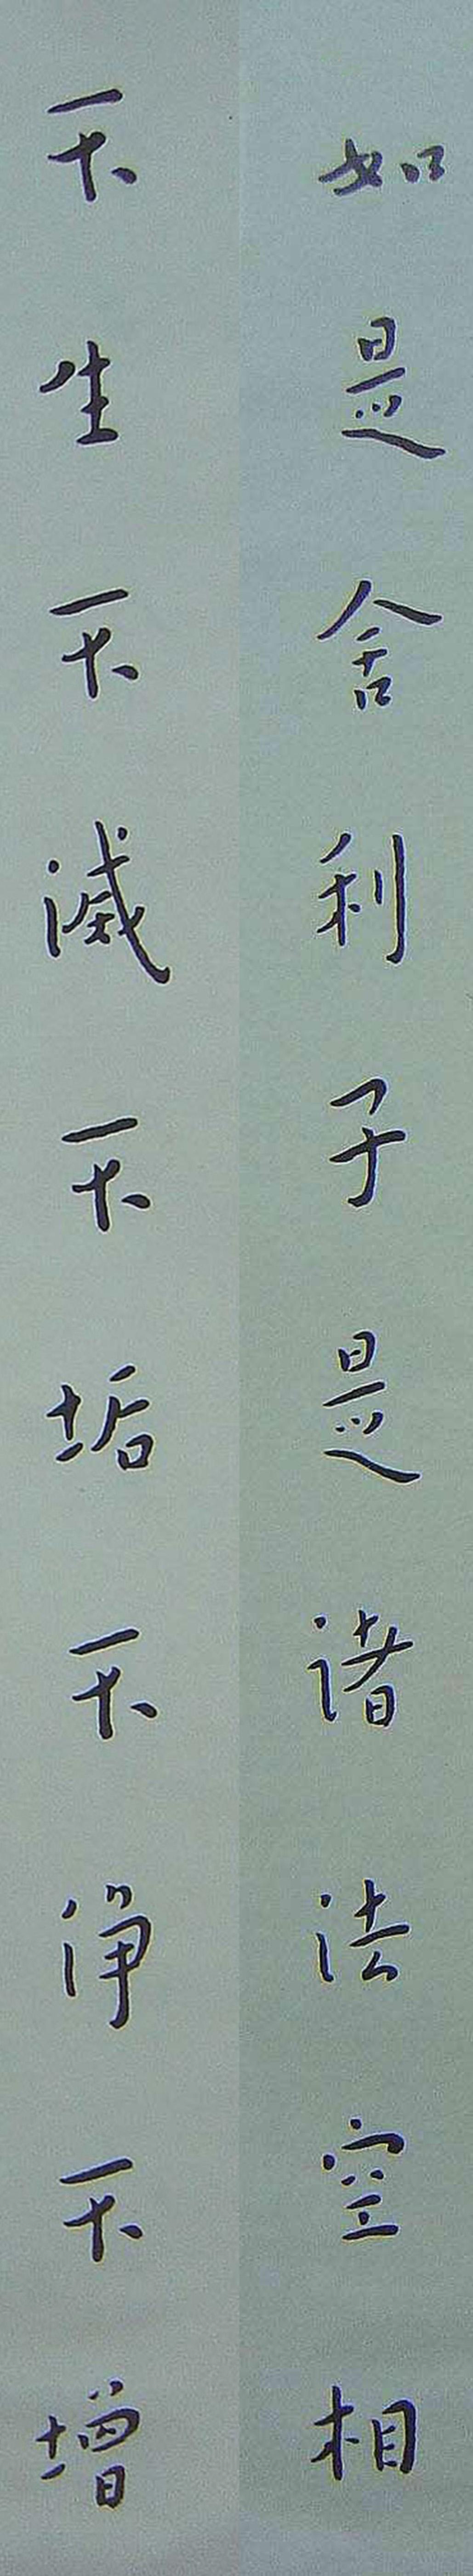 如是舍利子是诸法空相
不生不滅不垢不净不增